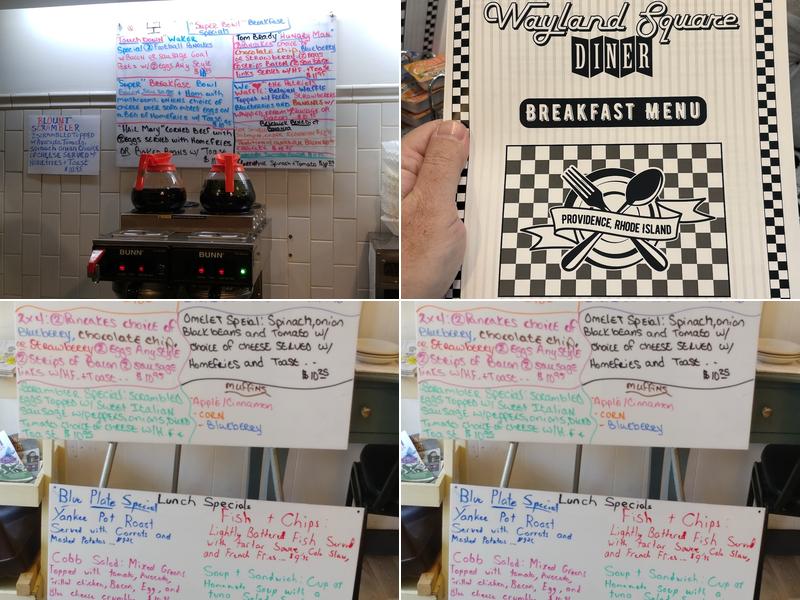 "Super Bowl" Breakfast
Specials
Touch Down Waker
Special ② Football Pancakes
w/Bacon or Sausage Goal
Post + w/② eggs Any Style
Tom Brady Hungry Man
② Pancakes choice of
chocolate chip, Blueberry
or Strawberry ② Eggs
② strips Bacon ② Sausage
links served w/H.F. + Toast
"Super" Breakfast Bowl
Ham with
mushroom, onions choice of
cheese over
a Bed of Homefries w/ Toast
We ♥ The Patriots
Waffle: Belgian Waffle
Topped w/ Fresh Strawberries
Blueberries and Bananas w/
whipped cream
"Hail Mary" Corned Beef with
② Eggs served with Homefries
or Baked Beans w/ Toast
Spinach + Tomato
BLOUNT
SCRAMBLER
Scrambled Topped
w/Avocado, Tomato,
Spinach, Onion Choice
of cheese served w/
Homefries + Toast
$10.95
BUNN
BUNN
Wayland Square
DINER
BREAKFAST MENU
PROVIDENCE, RHODE ISLAND
2x4: ② Pancakes choice of
Blueberry, chocolate chip,
or Strawberry ② Eggs Any style
② Strips of Bacon ② sausage
links w/H.F. + Toast... $10.99
Scrambler Special: Scrambled
eggs Topped w/ Sweet Italian
Sausage w/peppers, onions, Diced
Tomato choice of cheese w/H.F. +
Toast $10.95
Omelet Speial: Spinach, onion
Black beans and Tomato w/
choice of cheese served w/
Homefries and Toast..
$10.25
muffins
-Apple/Cinnamon
-CORN
-Blueberry
"Blue Plate Special
Yankee Pot Roast
Served with Carrots and
Mashed Potatoes...
Cobb Salad: Mixed Greens
Topped with tomato, Avocado,
Grilled chicken, Bacon, Egg, and
Blue cheese crumbles
Lunch Specials
Fish + Chips:
Lightly Battered Fish Served
with tartar Sauce, Cole Slaw,
and French Fries...
Soup + Sandwich: Cup of
Homemade Soup with a
tuna Salad
2x4: ② Pancakes choice of
Blueberry, chocolate chip,
or Strawberry ② Eggs Any style
② Strips of Bacon ② sausage
links w/H.F. + Toast... $10.99
Scrambler Special: Scrambled
eggs Topped w/ Sweet Italian
Sausage w/peppers, onions, Diced
Tomato choice of cheese w/H.F. +
Toast $10.95
Omelet Speial: Spinach, onion
Black beans and Tomato w/
choice of cheese served w/
Homefries and Toast..
$10.25
muffins
-Apple/Cinnamon
-CORN
-Blueberry
"Blue Plate Special
Yankee Pot Roast
Served with Carrots and
Mashed Potatoes...
Cobb Salad: Mixed Greens
Topped with tomato, Avocado,
Grilled chicken, Bacon, Egg, and
Blue cheese crumbles
Lunch Specials
Fish + Chips:
Lightly Battered Fish Served
with tartar Sauce, Cole Slaw,
and French Fries...
Soup + Sandwich: Cup of
Homemade Soup with a
tuna Salad